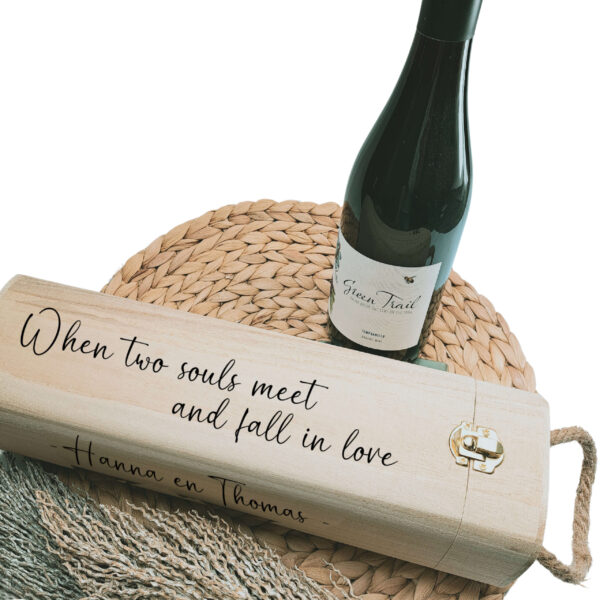 Green Trail
TEMPRANILLO
When two souls meet
and fall in love
- Hanna en Thomas -